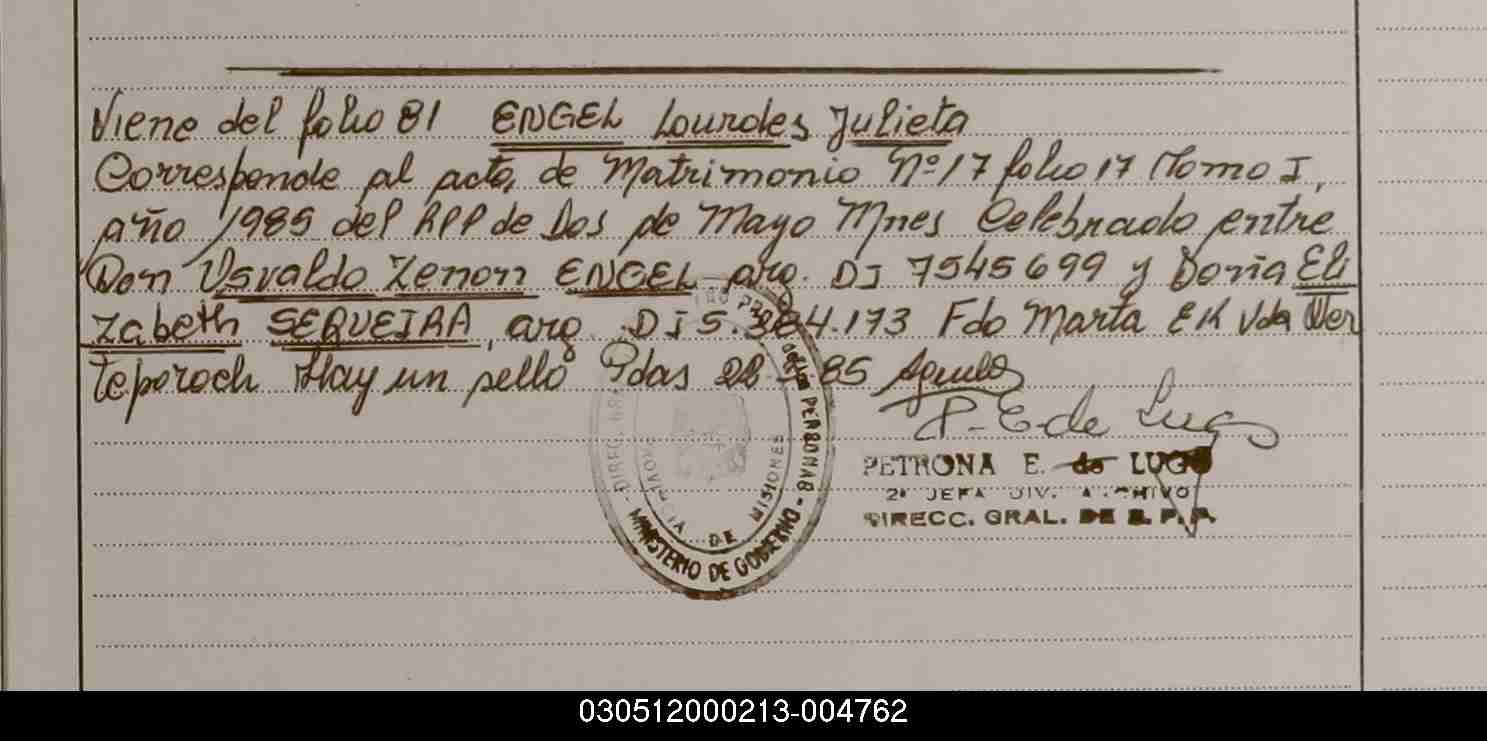 Viene del folio 81 ENGEL Lourdes Julieta
Corresponde al acta de Matrimonio Nº 17 folio 17 Tomo I,
año 1985 del RPP de Dos de Mayo Mnes Celebrado entre
Don Usvaldo Zenon ENGEL arg. DI 7545699 y Doña Eli
zabeth SEQUEIRA, arg. DI 5.384.173 Fdo Marta EK Vda Wer
teporoch Hay un sello Pdas 85
P. E de Lugo
PETRONA E. de LUGO
2ª JEFA DIV. ARCHIVO
DIRECC. GRAL. DE R. P. P.
PERSONAS - MINISTERIO DE GOBIERNO
PROVINCIA DE MISIONES
030512000213-004762